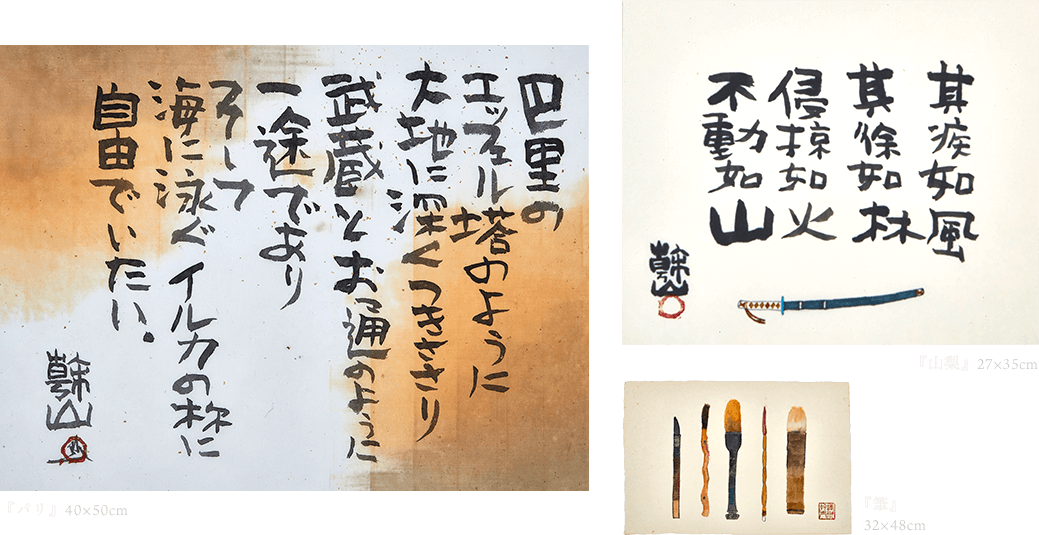 巴里の
エッフェル塔のように
大地に深くつきささり
武蔵とお通のように
一途であり
そして
海に泳ぐイルカの様に
自由でいたい。
『パリ』40×50cm
其疾如風
其徐如林
侵掠如火
不動如山
『山梨』27×35cm
『筆』
32×48cm